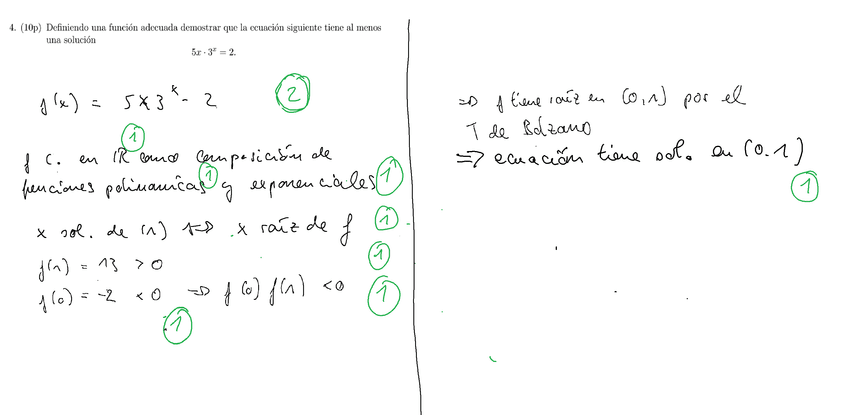 4. (10p) Definiendo una función adecuada demostrar que la ecuación siguiente tiene al menos
una solución
5x · 3^x = 2.
f(x) = 5x3^x - 2 (2)
(1)
f c. en ℝ como composición de
funciones polinomicas (1) y exponenciales (1)
x sol. de (1) <=> x raíz de f (1)
f(1) = 13 > 0 (1)
f(0) = -2 < 0 => f(0) f(1) < 0 (1)
(1)
=> f tiene raíz en (0,1) por el
T de Bolzano
=> ecuación tiene sol. en (0.1)
(1)